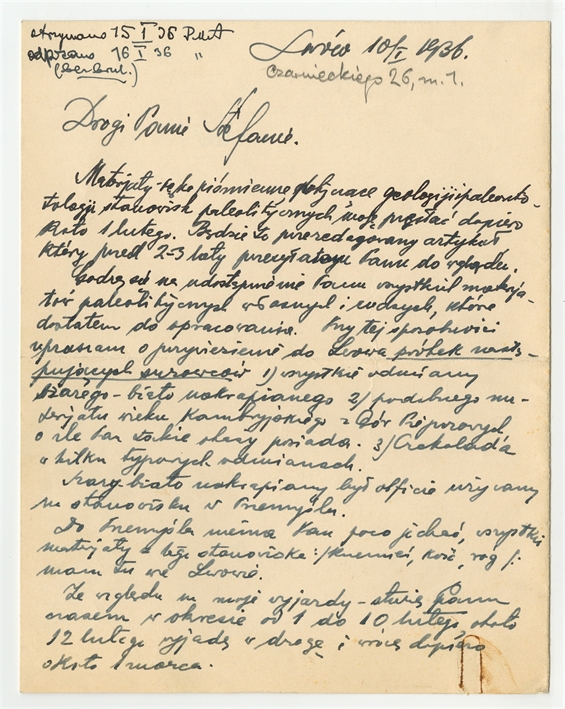 otrzymano 15 I 36
odpisano 16 I 36 "
Lwów 10/I 1936.
Czarnieckiego 26, m. 1.
Drogi Panie Stefanie.
Materjały rękopiśmienne dotyczące geologji i paleonto-
logji stanowisk paleolitycznych mogę przesłać dopiero
koło 1 lutego. Będzie to przeredagowany artykuł
który przed 2-3 laty przesyłałem Panu do wglądu.
Godzę się na udostępnienie Panu wszystkich materja-
łów paleolitycznych własnych i cudzych, które
dostałem do opracowania. Przy tej sposobności
upraszam o przywiezienie do Lwowa próbek nastę-
pujących surowców 1) wszystkie odmiany
szarego - biało nakrapianego 2) podobnego ma-
terjału wieku Kambryjskiego z Gór Pieprzowych
o ile Pan takie okazy posiada. 3) Czekolada
w kilku typowych odmianach.
Szary biało nakrapiany był obficie używany
na stanowisku w Przemyślu.
Do Przemyśla niema Pan poco jechać, wszystkie
materjały z tego stanowiska :/Krzemień, kość, róg/:
mam tu we Lwowie.
Ze względu na moje wyjazdy - służę Panu
czasem w okresie od 1 do 10 lutego około
12 lutego wyjadę w drogę i wrócę dopiero
około 1 marca.